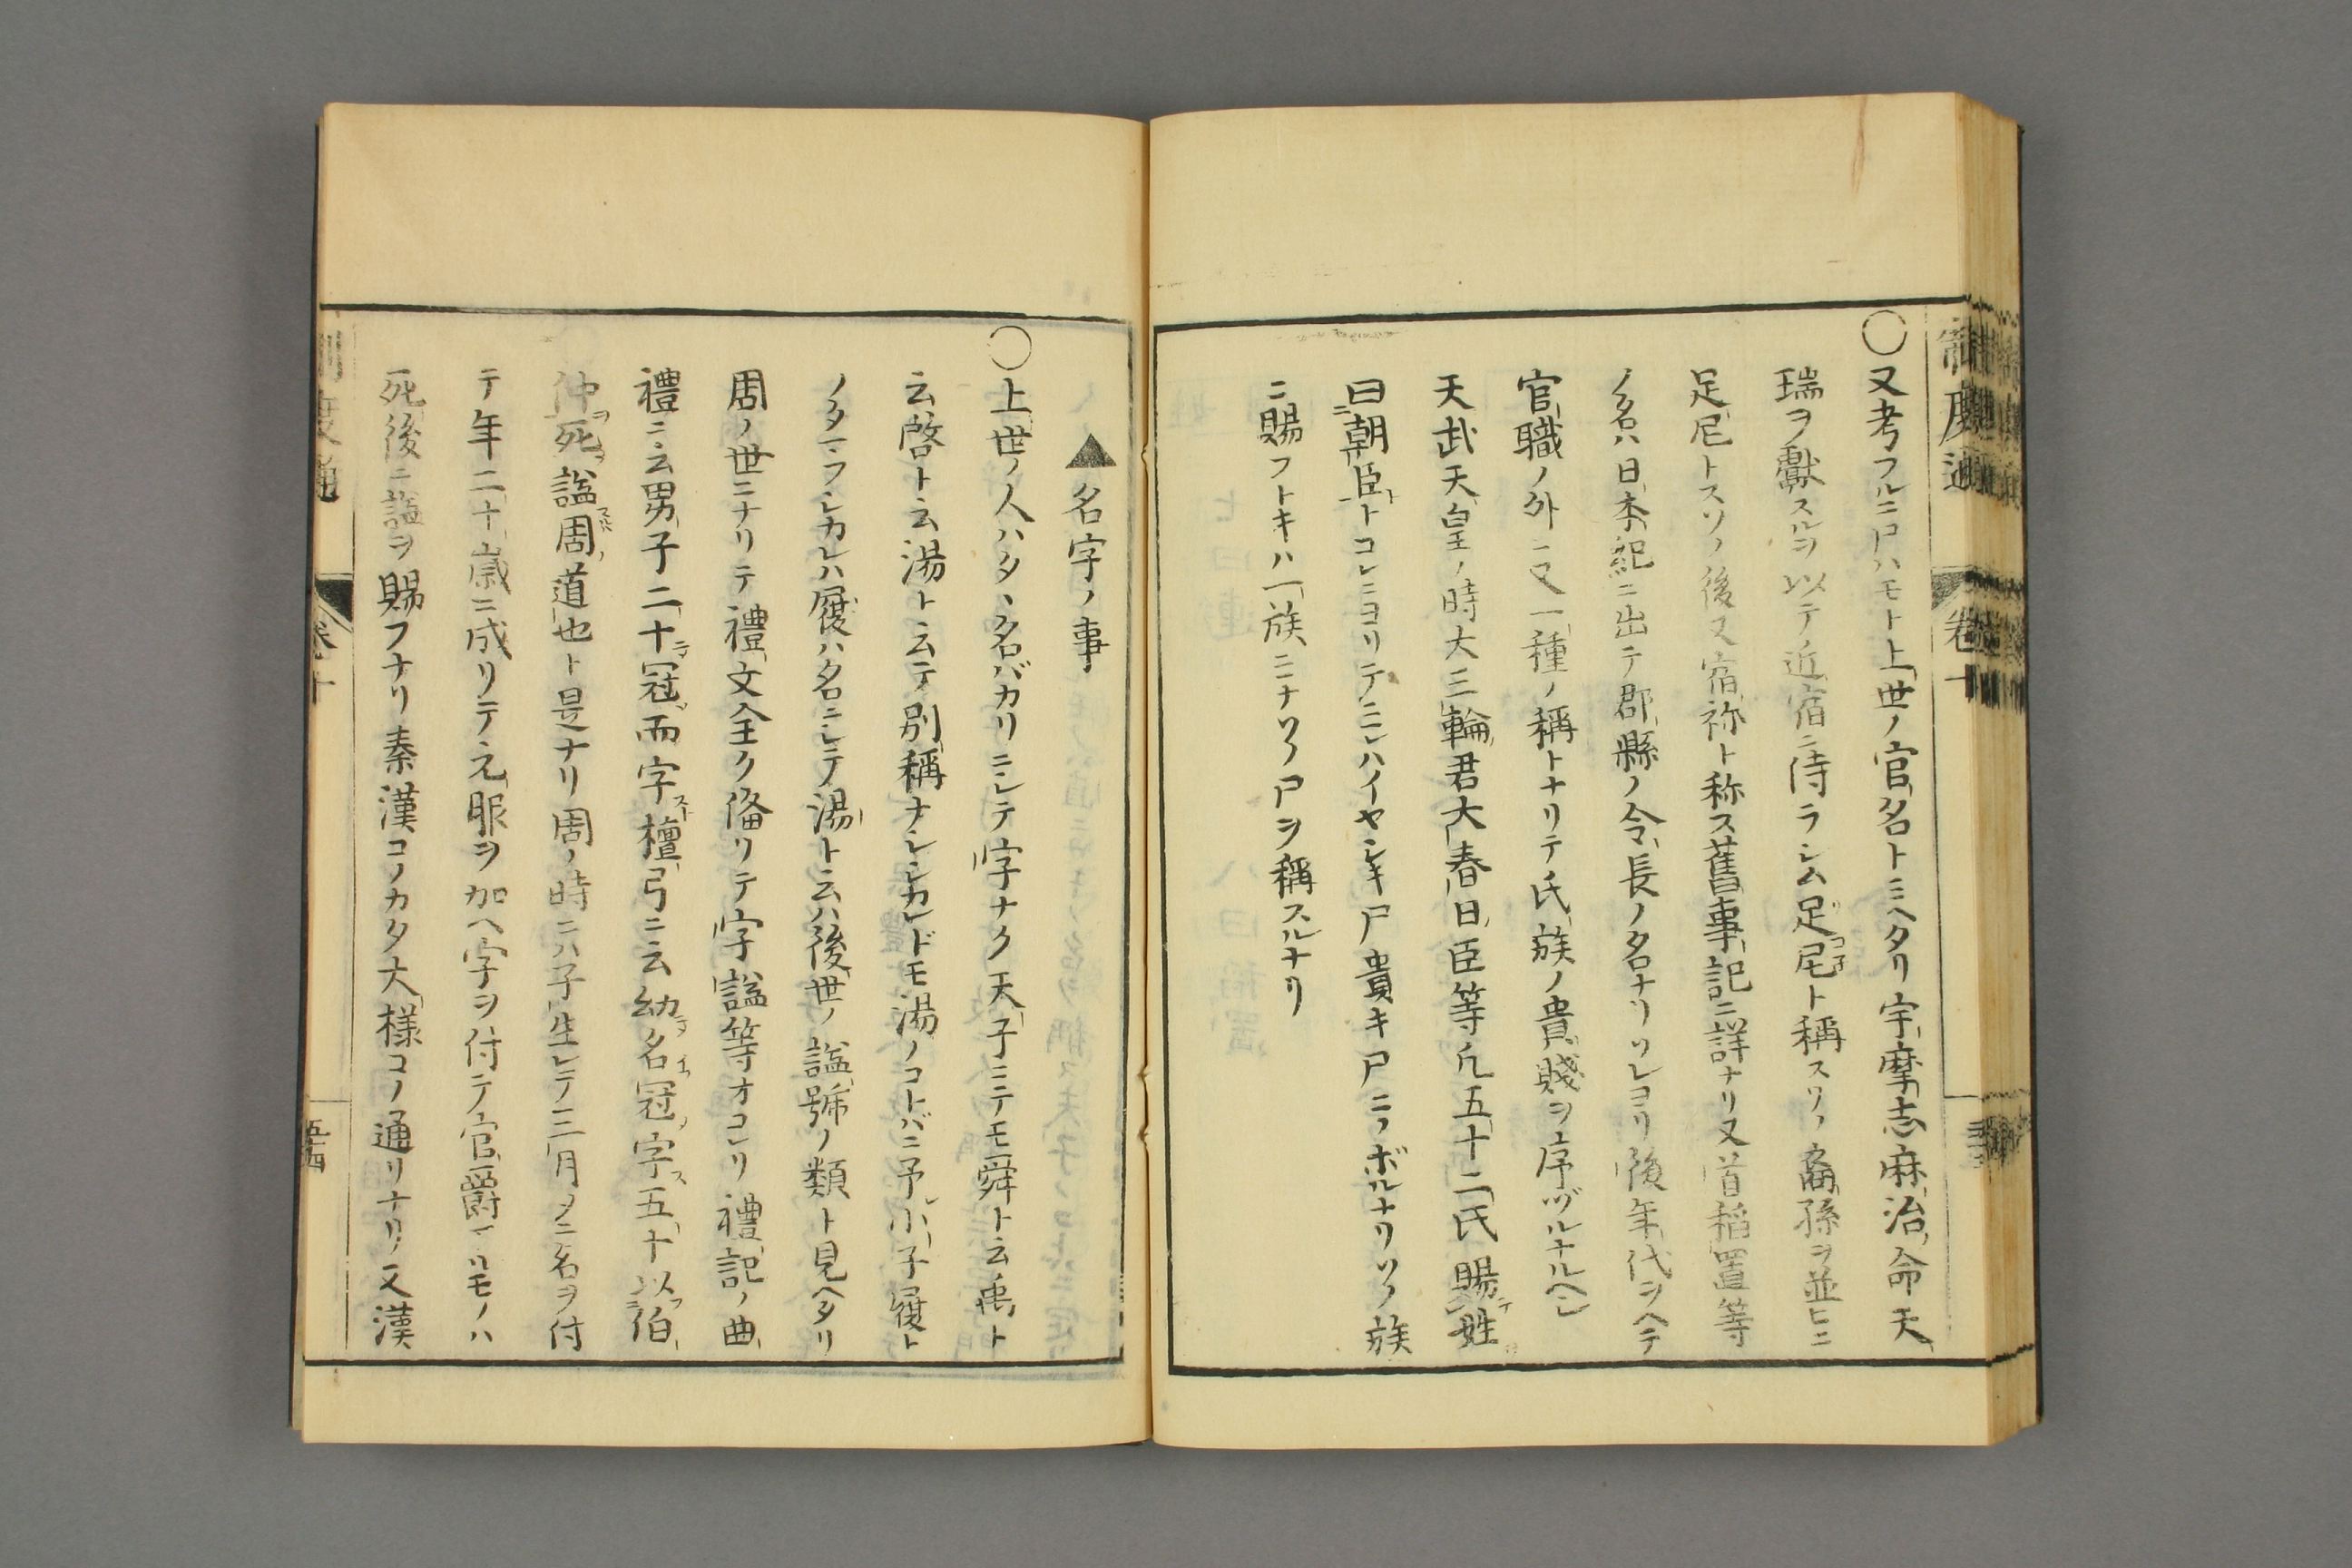 制度通
卷十
〇又考フルニ尸ハモト上世ノ官名トミヘタリ宇摩志麻治命天
瑞ヲ獻スルヲ以テ近宿ニ侍ラシム足尼ト稱スソノ裔孫ヲ並ヒニ
足尼トスソノ後又宿祢ト称ス舊事記ニ詳ナリ又首稻置等
ノ名ハ日本紀ニ出テ郡縣ノ令長ノ名ナリソレヨリ後年代ヲヘテ
官職ノ外ニ又一種ノ稱トナリテ氏族ノ貴賤ヲ序ヅルナルヘシ
天武天皇ノ時大三輪君大春日臣等凡五十二氏賜姓
曰朝臣トコレニヨリテミレハイヤシキ尸貴キ尸ニノボルナリソノ族
ニ賜フトキハ一族ミナソノ尸ヲ稱スルナリ
▲名字ノ事
〇上世ノ人ハタヽ名バカリニシテ字ナク天子ニテモ舜ト云禹ト
云啓ト云湯ト云テ別稱ナシシカレドモ湯ノコトバニ予小子履ト
ノタマフシカレハ履ハ名ニシテ湯ト云ハ後世ノ諡號ノ類ト見ヘタリ
周ノ世ニナリテ禮文全ク備リテ字諡等オコレリ禮記ノ曲
禮ニ云男子二十冠而字檀弓ニ云幼名冠字五十以伯
仲死諡周道也ト是ナリ周ノ時ニハ子生レテ三月メニ名ヲ付
テ年二十歳ニ成リテ元服ヲ加ヘ字ヲ付テ官爵アルモノハ
死後ニ諡ヲ賜フナリ秦漢コノカタ大樣コノ通リナリ又漢
制度通
卷十
五十四